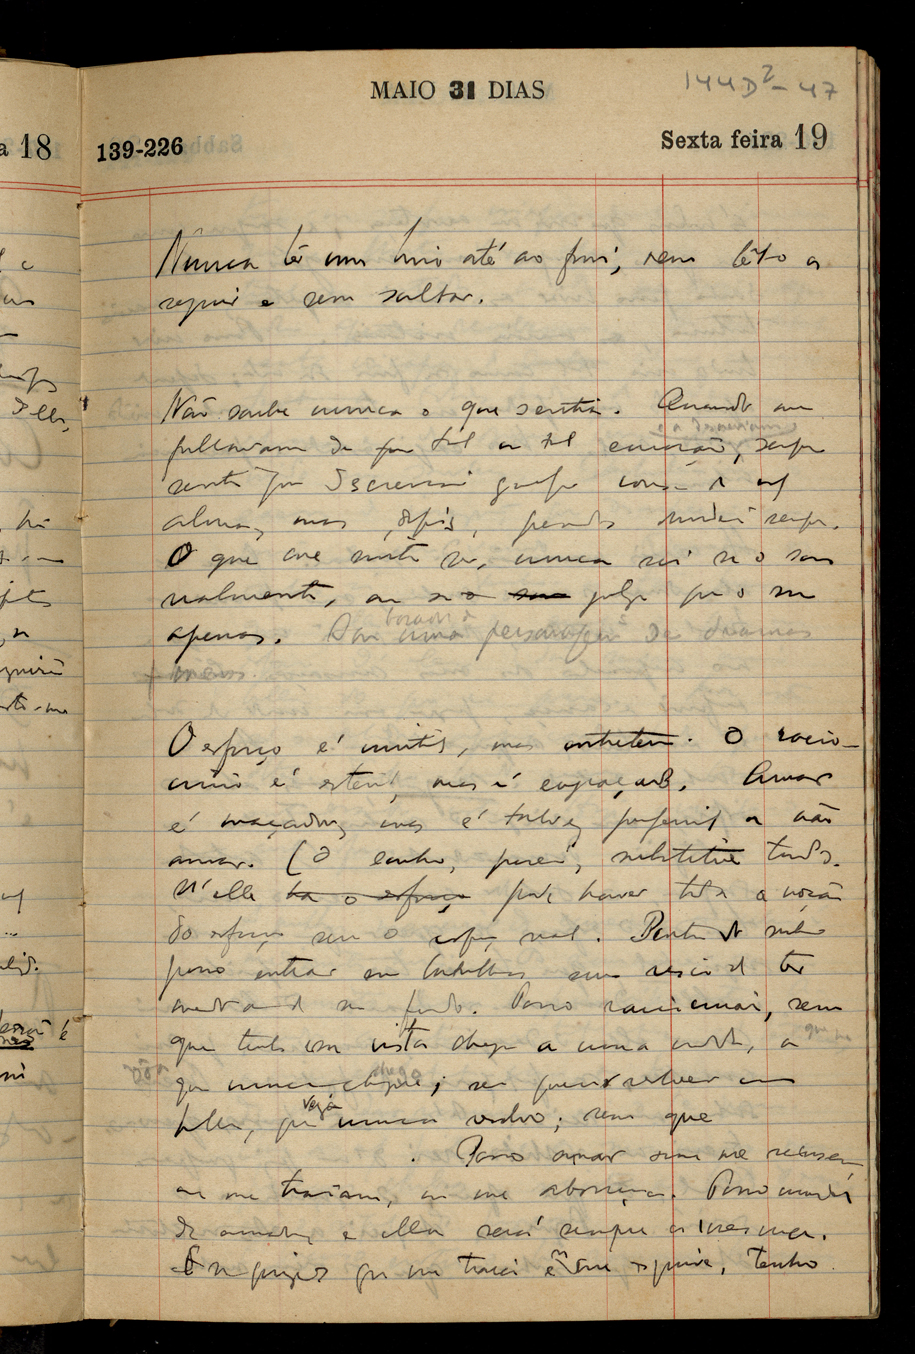 MAIO 31 DIAS
144D²-47
a 18
139-226
Sexta feira 19
Nunca lêr um livro até ao fim, nem lêl-o a
seguir e sem saltar.
Não soube nunca o que sentia. Quando me
fallavam de tal ou tal emoção, e a descreviam, sempre
senti que descreviam qualquer cousa da minha
alma, mas, depois, pensando, duvidei sempre.
O que me sinto ser, nunca sei se o sou
realmente, ou se o sou julgo que o sou
apenas. Sou uma personagem de dramas
meus.
O esforço é inutil, mas entretem. O racio-
cinio é esteril, mas é engraçado. Amar
é maçador, mas é talvez preferivel a não
amar. (O sonho, porém, substitue tudo.
N'elle ha o esforço pode haver toda a noção
do esforço sem o esforço real. Dentro do sonho
posso entrar em batalhas sem risco de ter
medo ou de ser ferido. Posso raciocinar, sem
que tenha em vista chegar a uma verdade, a
que nunca chegue; sem querer resolver um
problema, que veja nunca resolvo; sem que
. Posso amar sem me recusarem
ou me trairem, ou me aborrecerem. Posso mudar
de amada e ella será sempre a mesma.
E se quizer que me traia e se me esquive, tenho